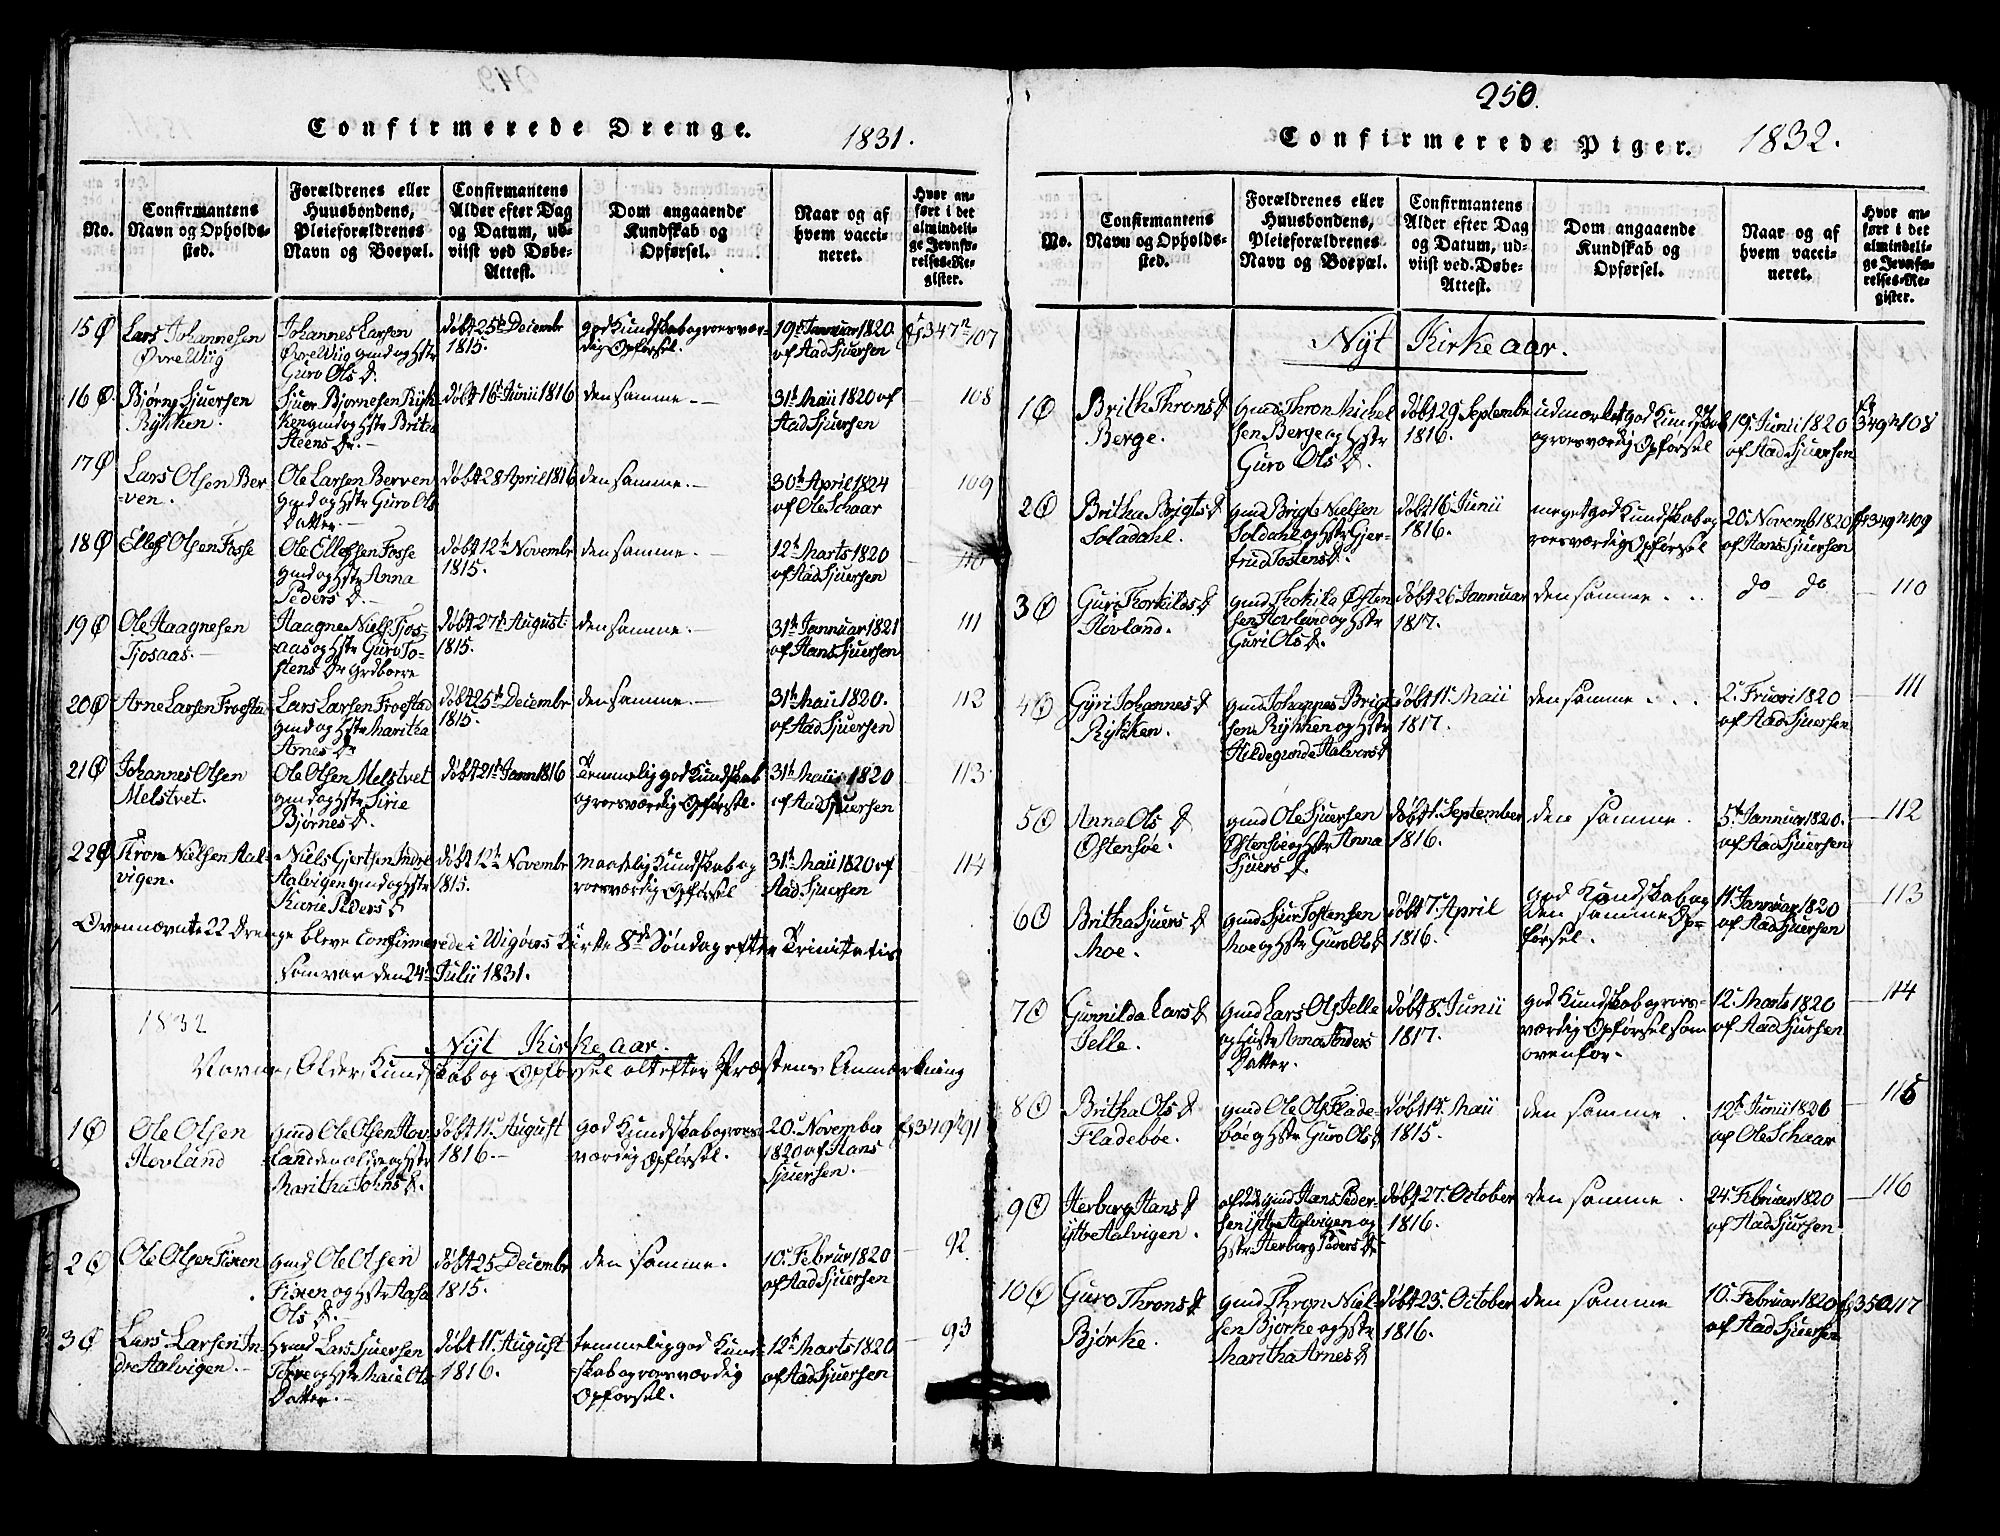 Confirmerede Drenge. 1831.
No.
Confirmantens Navn og Opholds-sted.
Forældrenes eller Huusbondens, Pleieforældrenes Navn og Boepæl.
Confirmantens Alder efter Dag og Datum, ud-viist ved Døbe-Attest.
Dom angaaende Kundskab og Opførsel.
Naar og af hvem vacci-neret.
Hvor an-ført i det almindeli-ge Jevnfø-relses-Re-gister.
15
Lars Johannesen
Øvre Wiig
Johannes Larsen
Øvre Wiig gmd og Hstr
Guro Ols D.
døbt 25de Decembr
1815.
god Kundskab og roesvær-
dig Opførsel.
19de Januar 1820
af Aad Sjuersen
347 107
16
Bjørn Sjuersen
Rykken.
Sjuer Bjørnesen Ryk
ken gmd og Hstr Brita
Steens Dr.
døbt 16de Junii 1816
den samme.
31te Maii 1820 af
Aad Sjuersen
108
17
Lars Olsen Ber
-ven.
Ole Larsen Berven
gmd og Hstr Guro Ols
Datter.
døbt 28 April 1816
den samme.
30te April 1824
af Ole Schaar
109
18
Ellef Olsen Fosse
Ole Ellefsen Fosse
gmd og Hstr Anna
Peders D.
døbt 12te Novembr
1815.
den samme.
12te Marts 1820
af Aad Sjuersen
110
19
Ole Haagnesen
Tjosaas.
Haagne Niels Tjos
aas og Hstr Guro To-
stens Dr
døbt 27de August
1815.
den samme.
31te Januar 1821
af Hans Sjuersen
111
20
Arne Larsen Froestad
Lars Larsen Froestad
gmd og Hstr Maritha
Arnes Dr
døbt 25de Decembr
1815.
den samme.
31te Maii 1820.
af Aad Sjuersen
112
21
Johannes Olsen
Melstvet.
Ole Olsen Melstvet
gmd og Hstr Sirie
Bjørnes D.
døbt 21de Janr 1816
Temmelig god Kundskab
og roesværdig Opførsel.
31te Maii 1820
af Aad Sjuersen
113
22
Thron Nielsen Aal-
vigen.
Niels Gjertsen Indre
Aalvigen gmd og Hstr
Kurie Peders D
døbt 12te Novembr
1815.
Maadelig Kundskab og
roesværdig Opførsel
31te Maii 1820 af
Aad Sjuersen
114
Ovennævnte 22 Drenge bleve Confirmerede i Wigørs Kirke 8de Søndag efter Trinitatis
som var den 24de Julii 1831.
1832
Nyt Kirkeaar.
Navne, Alder, Kundskab og Opførsel alt efter Præstens Anmærkning
1
Ole Olsen
Hovland
gmd Ole Olsen Hov-
land den ældre og Hstr
Maritha Johns D.
døbt 11te August
1816.
god Kundskab og roes
værdig Opførsel.
20de November
1820 af Hans
Sjuersen.
349 91
2
Ole Olsen Fixen
gmd Ole Olsen
Fixen og Hstr Aasa
Ols D.
døbt 25 Decembr
1815.
den samme.
10de Februr 1820
af Aad Sjuersen
92
3
Lars Larsen In-
dre Aalvigen.
Lars Sjuersen
og Hstr Marie Ols
Datter.
døbt 11te August
1816.
temmelig god Kund-
skab og roesværdig
Opførsel.
12te Marts 1820
af Aad Sjuersen
93
250.
Confirmerede Piger. 1832.
No.
Confirmantens Navn og Opholds-sted.
Forældrenes eller Huusbondens, Pleieforældrenes Navn og Boepæl.
Confirmantens Alder efter Dag og Datum, ud-viist ved Døbe-Attest.
Dom angaaende Kundskab og Opførsel.
Naar og af hvem vacci-neret.
Hvor an-ført i det almindeli-ge Jevnfø-relses-Re-gister.
Nyt Kirkeaar.
1
Brith Throns D
Berge.
gmd Thron Michel
sen Berge og Hstr
Guro Ols D.
døbt 29 Septembr
1816.
udmærket god Kundskab
og roesværdig Opførsel
19de Junii 1820
af Aad Sjuersen
349 108
2
Britha Brigts D
Soladahl.
gmd Brigt Nielsen
Soldahl og Hstr Gjer-
trud Tostens D.
døbt 16de Junii
1816.
meget god Kundskab og
roesværdig Opførsel
20de Novemb 1820
af Hans Sjuersen
349 109
3
Guri Thorkilds D
Hovland.
gmd Thorkild Østen
sen Hovland og Hstr
Guri Ols D.
døbt 26 Januar
1817.
den samme
do do
110
4
Gyri Johannes D
Rykken.
gmd Johannes Brigt
sen Rykken og Hstr
Hildegunde Halvors D
døbt 11te Maii
1817.
den samme
2de Februari 1820
af Aad Sjuersen
111
5
Anna Ols D
Østensøe.
gmd Ole Sjuersen
Østensøe og Hstr Anna
Sjuers D.
døbt 1ste September
1816.
den samme.
5te Januar 1820.
af Aad Sjuersen
112
6
Britha Sjuers D
Moe.
gmd Sjur Tostensen
Moe og Hstr Guro Ols D
døbt 7de April
1816.
god Kundskab og
den samme Op-
førsel.
11te Januar 1820
af Aad Sjuersen
113
7
Gunnilda Lars D
Telle.
gmd Lars Ols Telle
og Hustr Anna Anders
Datter.
døbt 8de Junii
1817.
god Kundskab og roes-
værdig Opførsel som
ovenfor.
12te Marts 1820
af Aad Sjursen
114
8
Britha Ols D
Fladebøe.
gmd Ole Ols Flade-
bøe og Hstr Guro Ols D
døbt 14de Maii
1815.
den samme
12te Junii 1820
af Ole Schaar
115
9
Herborg Hans D
Ytre Aalvigen.
afdøde gmd Hans Peder-
sen Ytre Aalvigen og
Hstr Herborg Peders D
døbt 27de October
1816.
den samme.
24de Februar 1820
af Aad Sjursen.
116
10
Guro Throns D
Bjørke.
gmd Thron Niel-
sen Bjørke og Hstr
Maritha Arnes D
døbt 25de October
1816.
den samme
10de Februar 1820
af Aad Sjuersen
350 117